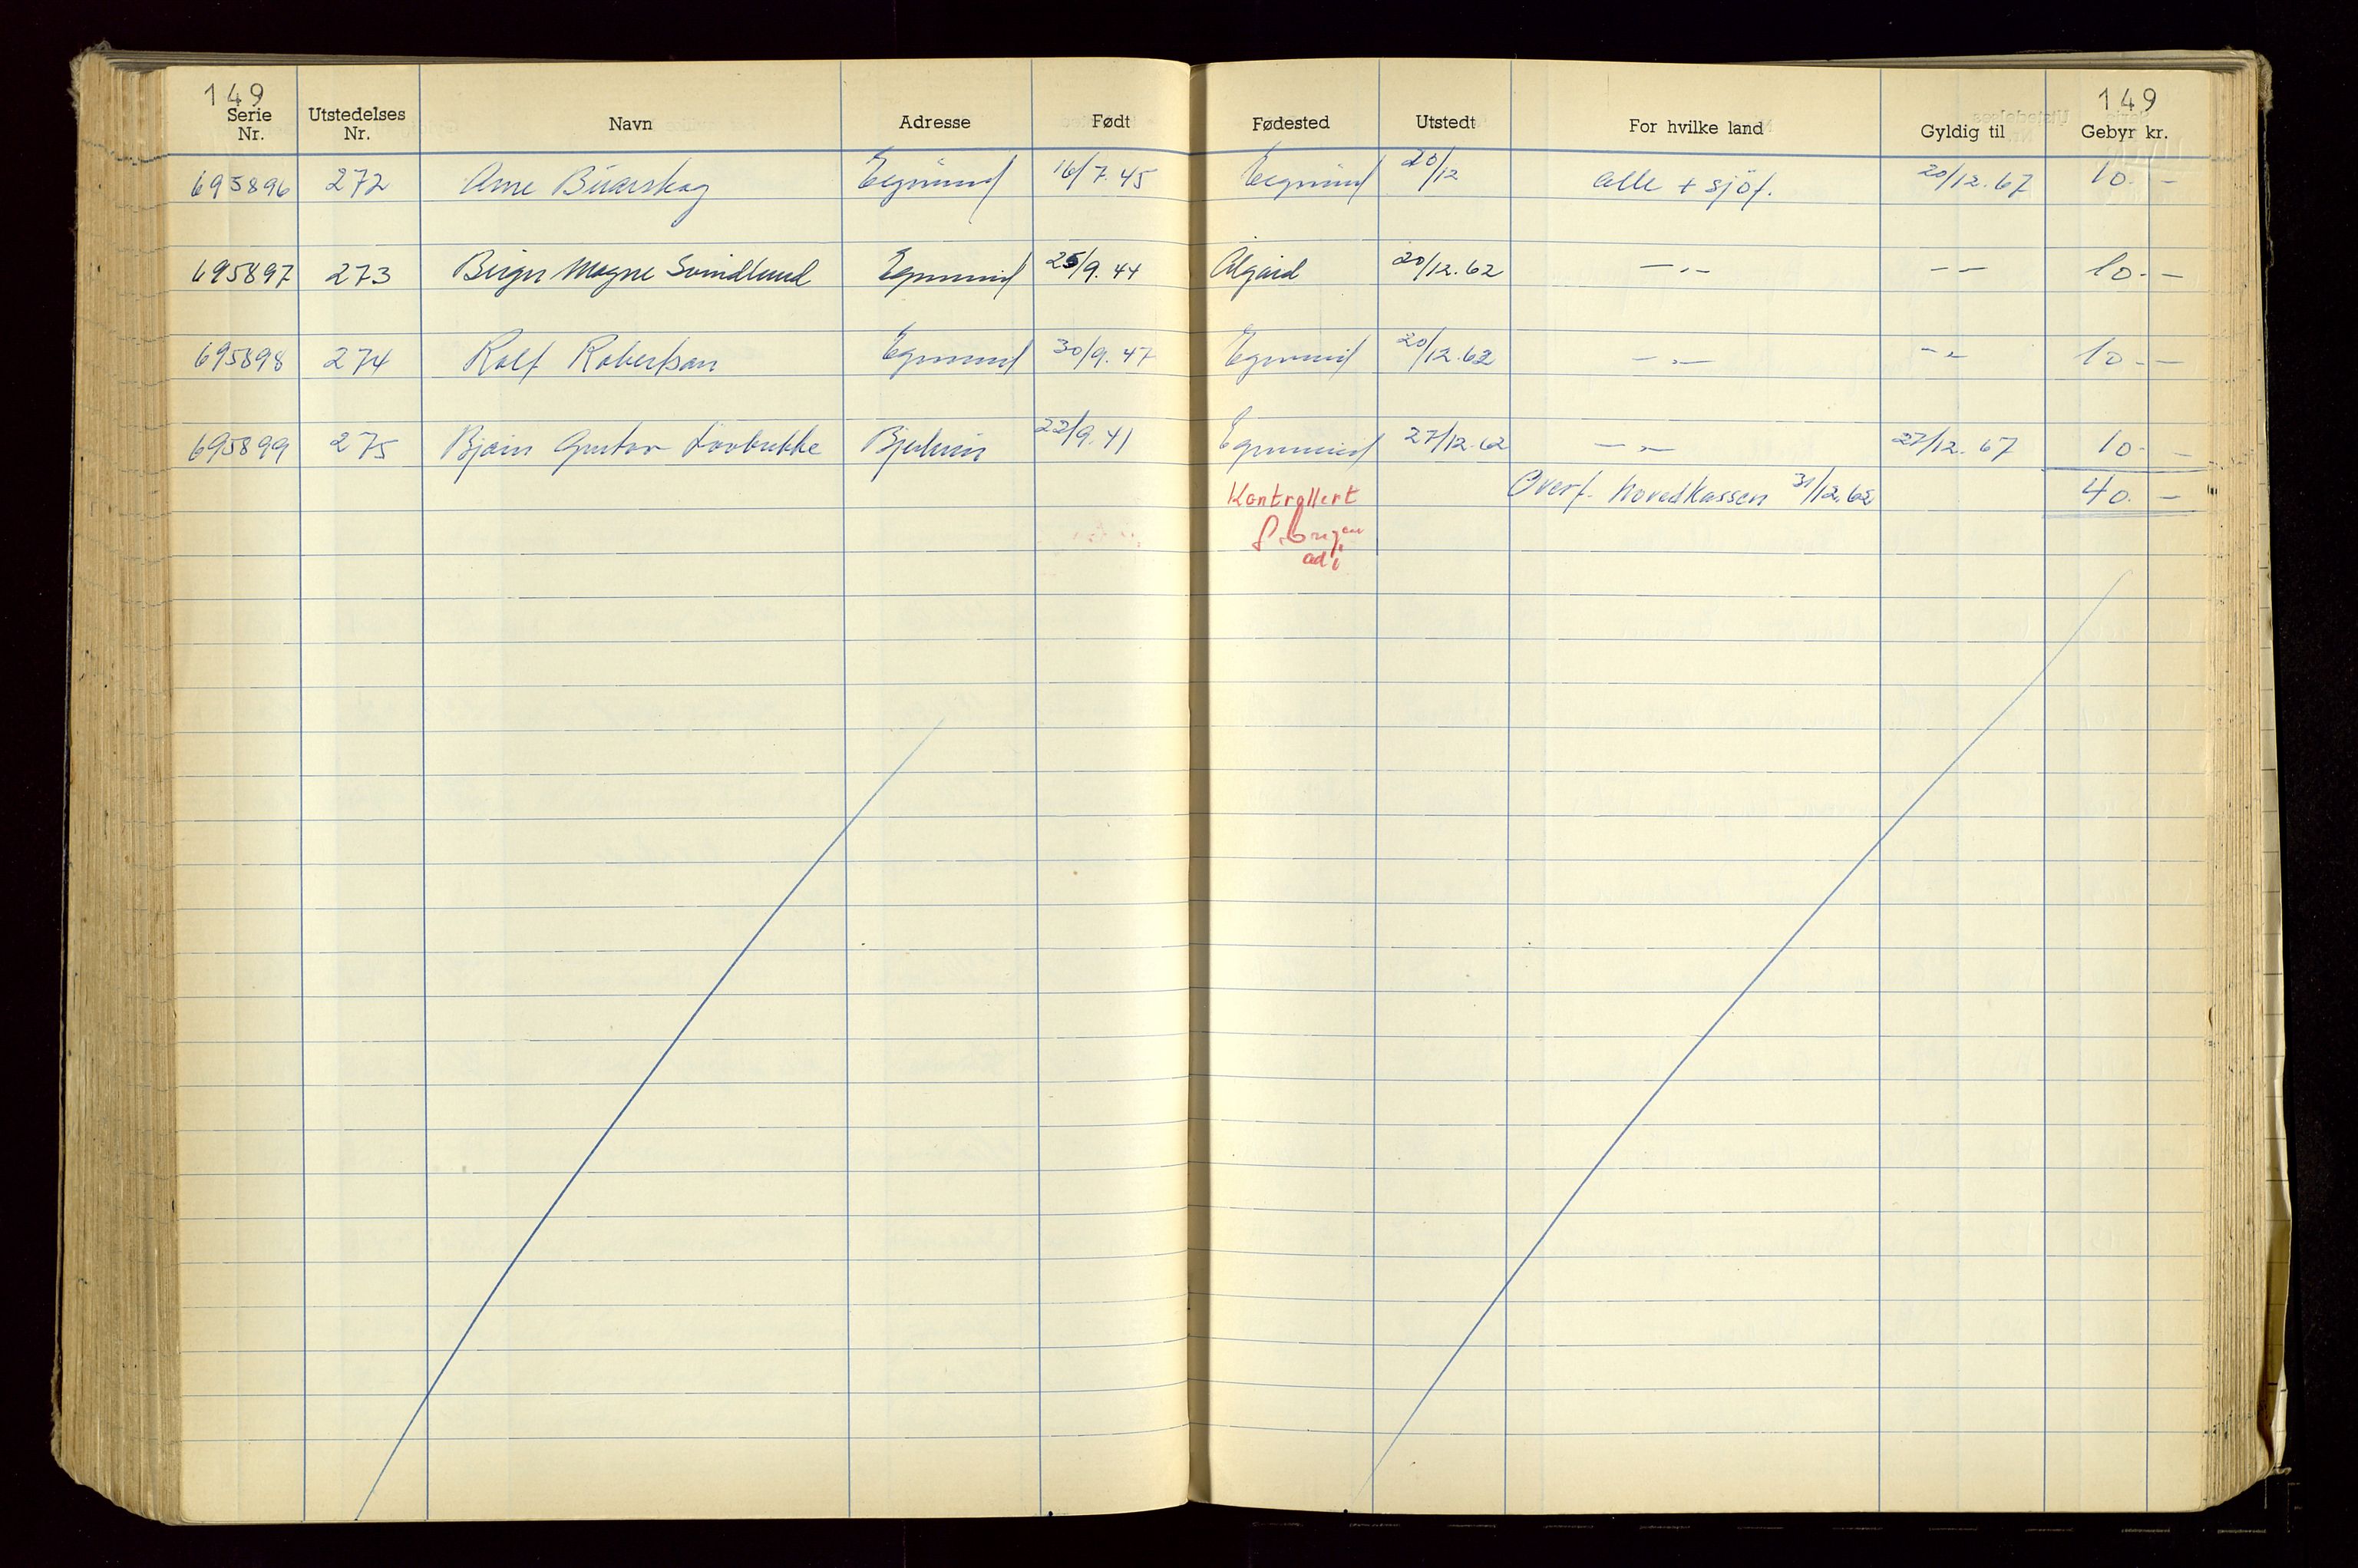 149 149
Serie Nr. Utstedelses Nr. Navn Adresse Født Fødested Utstedt For hvilke land Gyldig til Gebyr kr.
695896 272 Arne Buarskog Egersund 16/7.45 Egersund 20/12 alle + sjöf. 20/12.67 10.-
695897 273 Birger Magne Svindland Egersund 25/9.44 Ålgård 20/12.62 -"- -"- 10.-
695898 274 Rolf Robertson Egersund 30/9.47 Egersund 20/12.62 -"- -"- 10.-
695899 275 Bjørn Gustav Bjerkreim 22/9.41 Egersund 27/12.62 -"- 27/12.67 10.-
Kontrollert Overf. hovedkassen 31/12.62 40.-